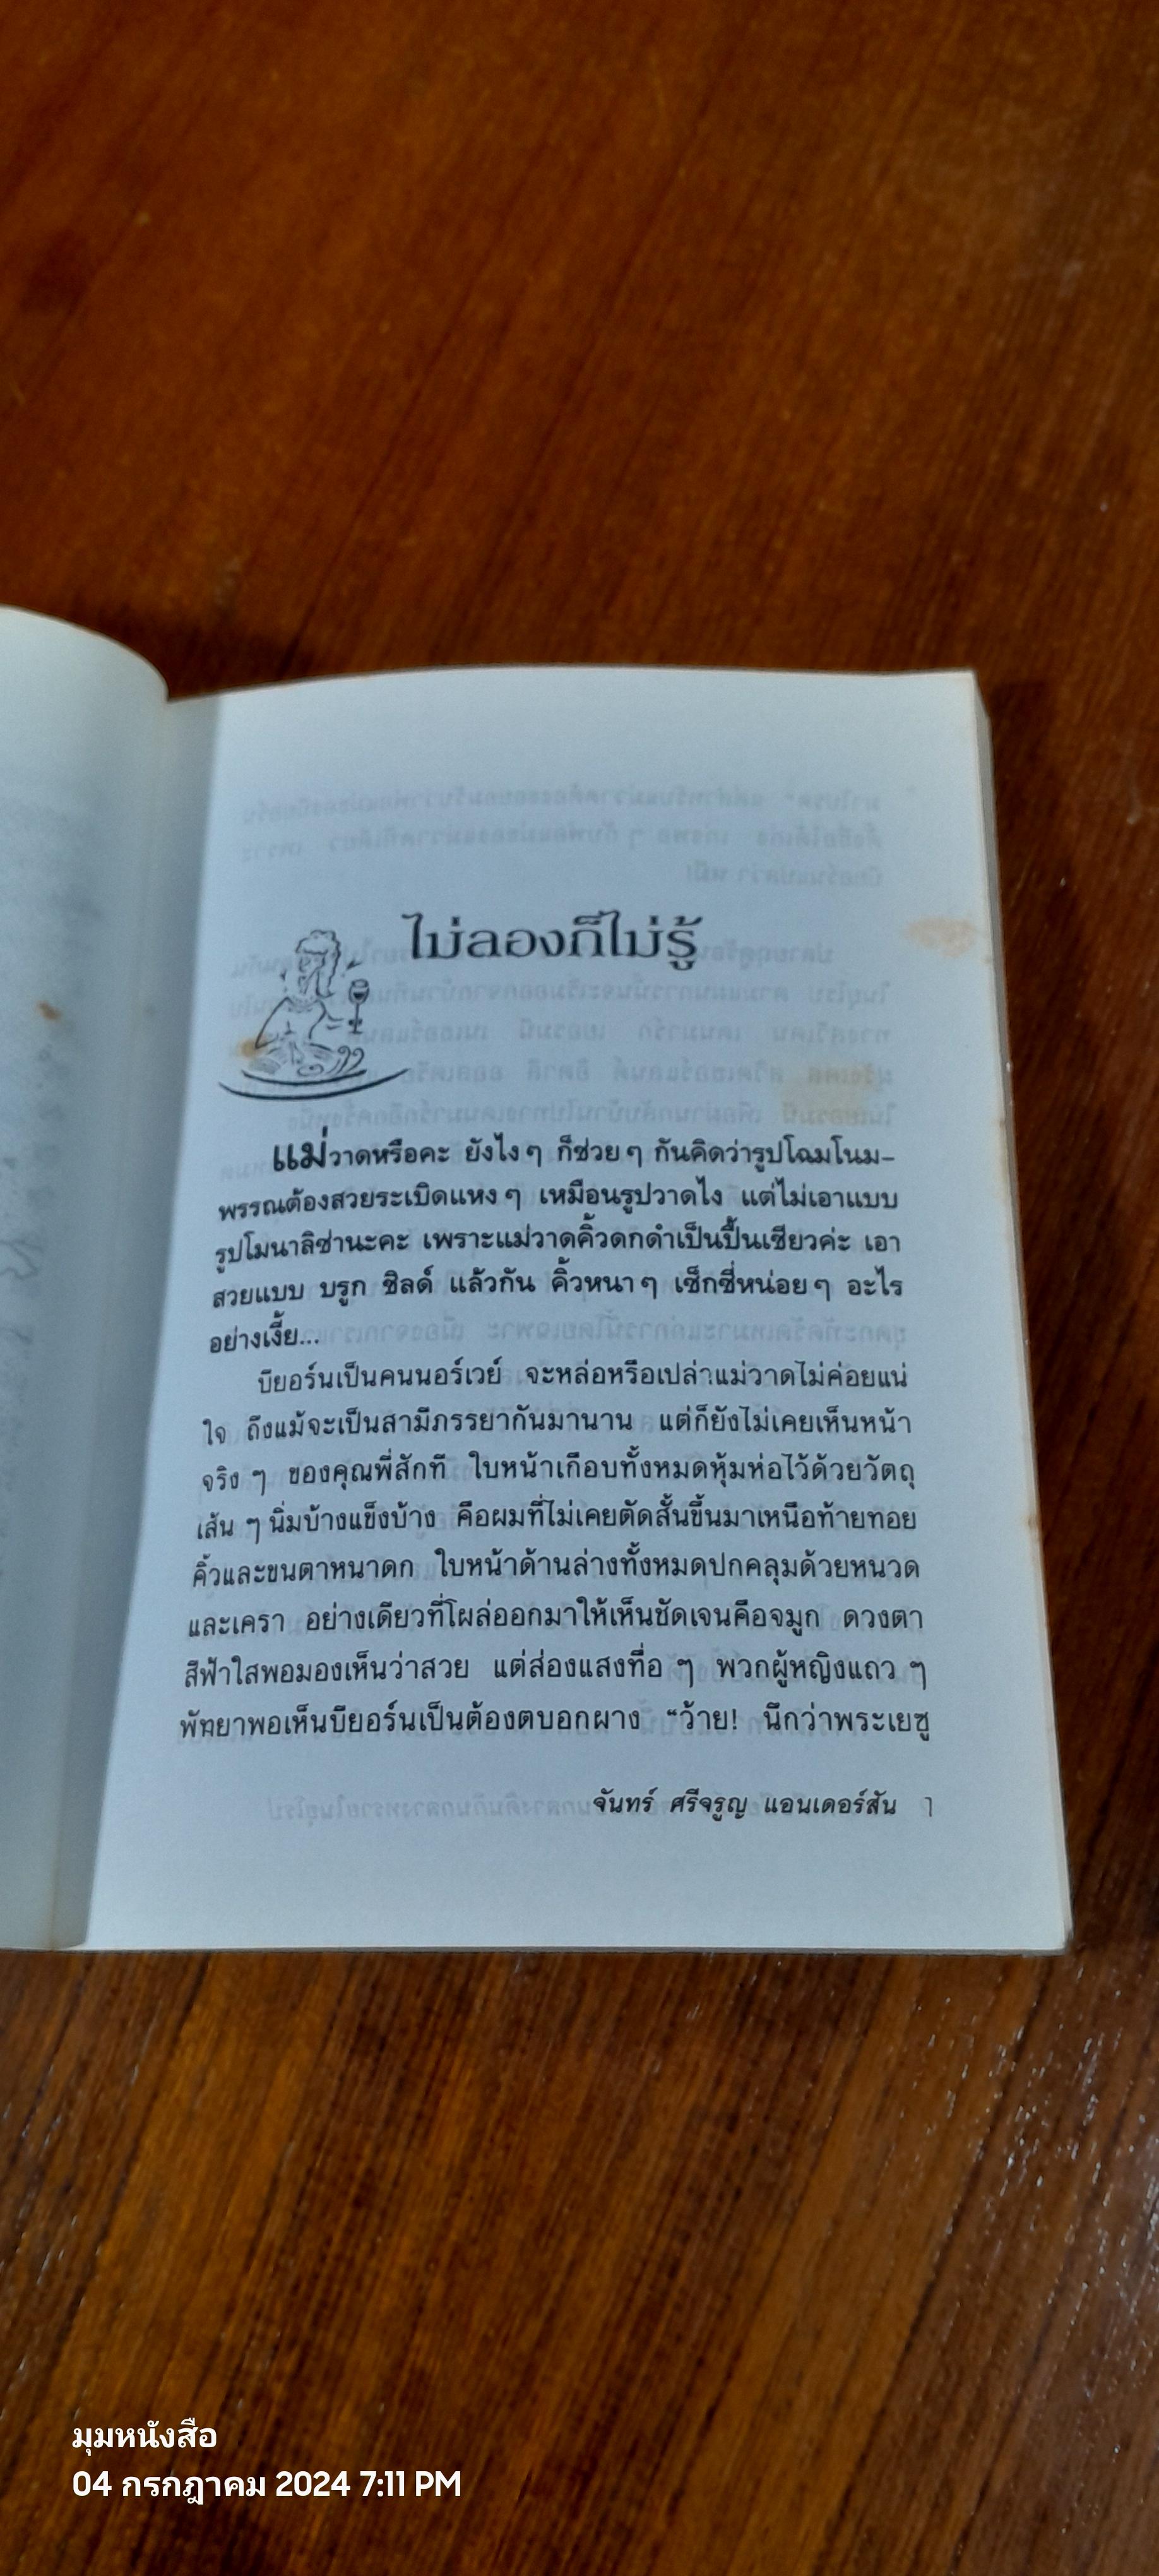 ไม่ลองก็ไม่รู้
แม่วาดหรือคะ ยังไง ๆ ก็ช่วย ๆ กันคิดว่ารูปโฉมโนม-
พรรณต้องสวยระเบิดแหง ๆ เหมือนรูปวาดไง แต่ไม่เอาแบบ
รูปโมนาลิซ่านะคะ เพราะแม่วาดคิ้วดกดำเป็นปื้นเชียวค่ะ เอา
สวยแบบ บรูก ชิลด์ แล้วกัน คิ้วหนา ๆ เซ็กซี่หน่อย ๆ อะไร
อย่างเงี้ย...
บียอร์นเป็นคนนอร์เวย์ จะหล่อหรือเปล่าแม่วาดไม่ค่อยแน่
ใจ ถึงแม้จะเป็นสามีภรรยากันมานาน แต่ก็ยังไม่เคยเห็นหน้า
จริง ๆ ของคุณพี่สักที ใบหน้าเกือบทั้งหมดหุ้มห่อไว้ด้วยวัตถุ
เส้น ๆ นิ่มบ้างแข็งบ้าง คือผมที่ไม่เคยตัดสั้นขึ้นมาเหนือท้ายทอย
คิ้วและขนตาหนาดก ใบหน้าด้านล่างทั้งหมดปกคลุมด้วยหนวด
และเครา อย่างเดียวที่โผล่ออกมาให้เห็นชัดเจนคือจมูก ดวงตา
สีฟ้าใสพอมองเห็นว่าสวย แต่ส่องแสงทื่อ ๆ พวกผู้หญิงแถว ๆ
พัทยาพอเห็นบียอร์นเป็นต้องตบอกผาง “ว้าย! นึกว่าพระเยซู
จันทร์ ศรีจรูญ แอนเดอร์สัน ๅ
มุมหนังสือ
04 กรกฎาคม 2024 7:11 PM